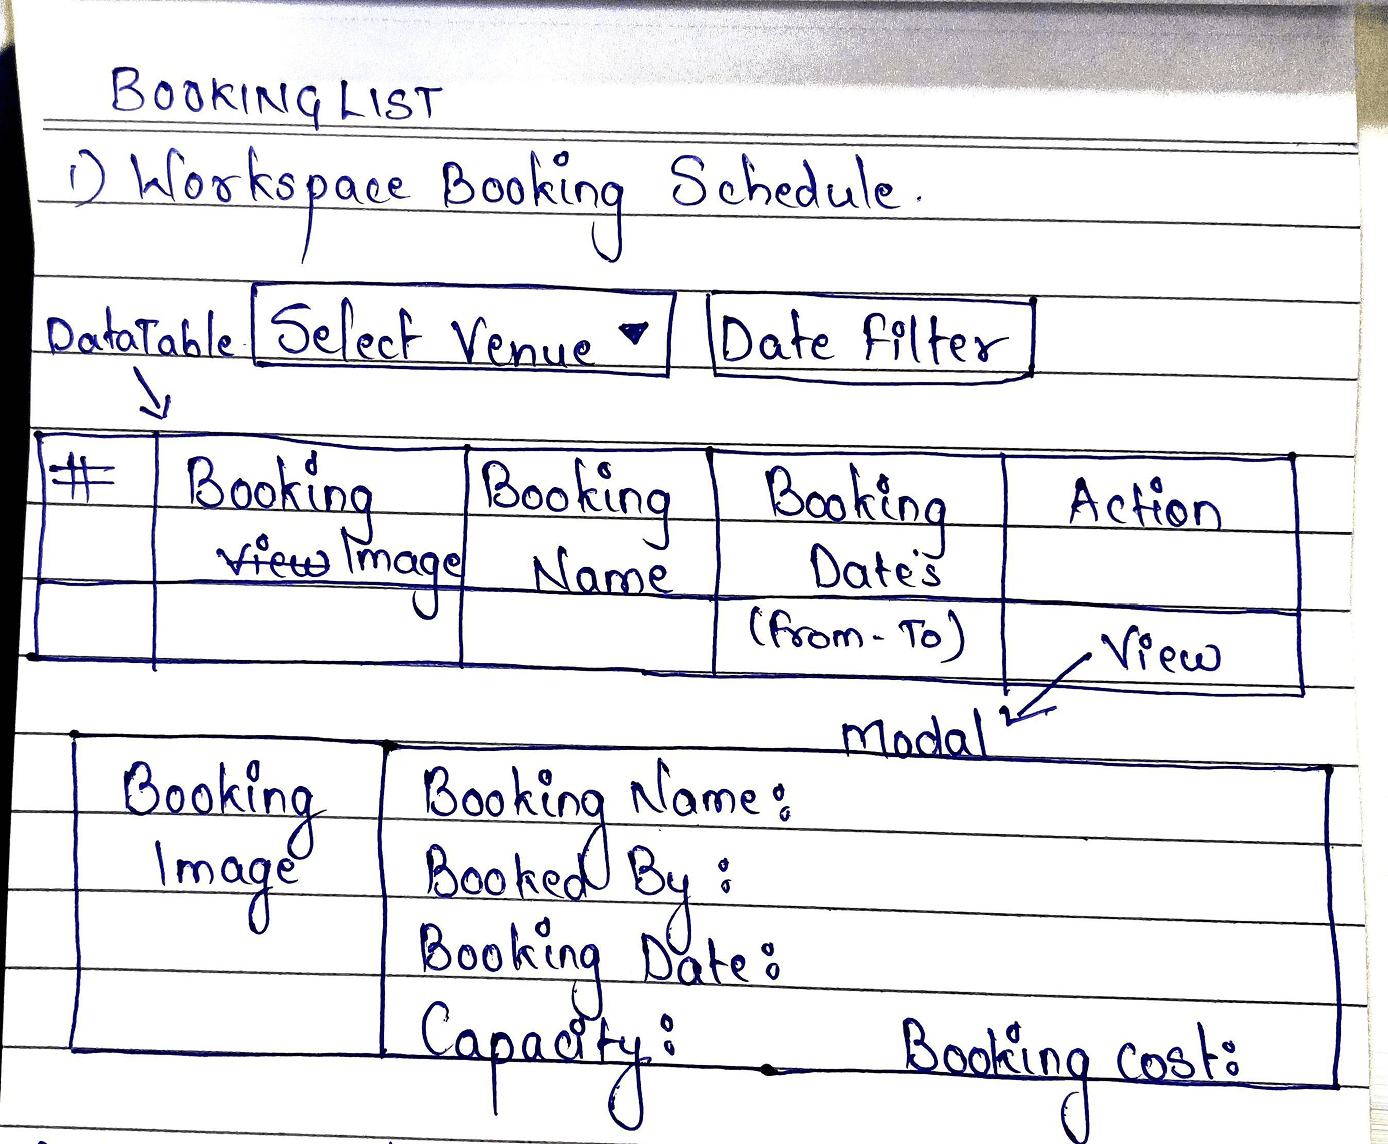 BOOKING LIST
1) Workspace Booking Schedule.
DataTable Select Venue ▼ Date Filter
# Booking Booking Booking Action
view Image Name Date's
(From - To) View
Modal
Booking Booking Name:
Image Booked By:
Booking Date:
Capacity: Booking cost: